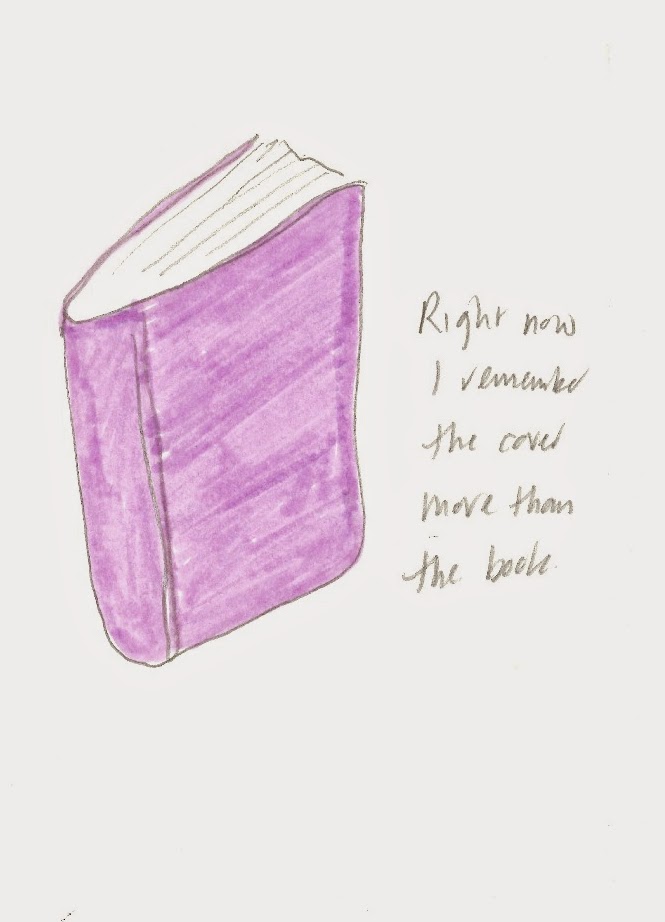 Right now
I remember
the cover
more than
the book.